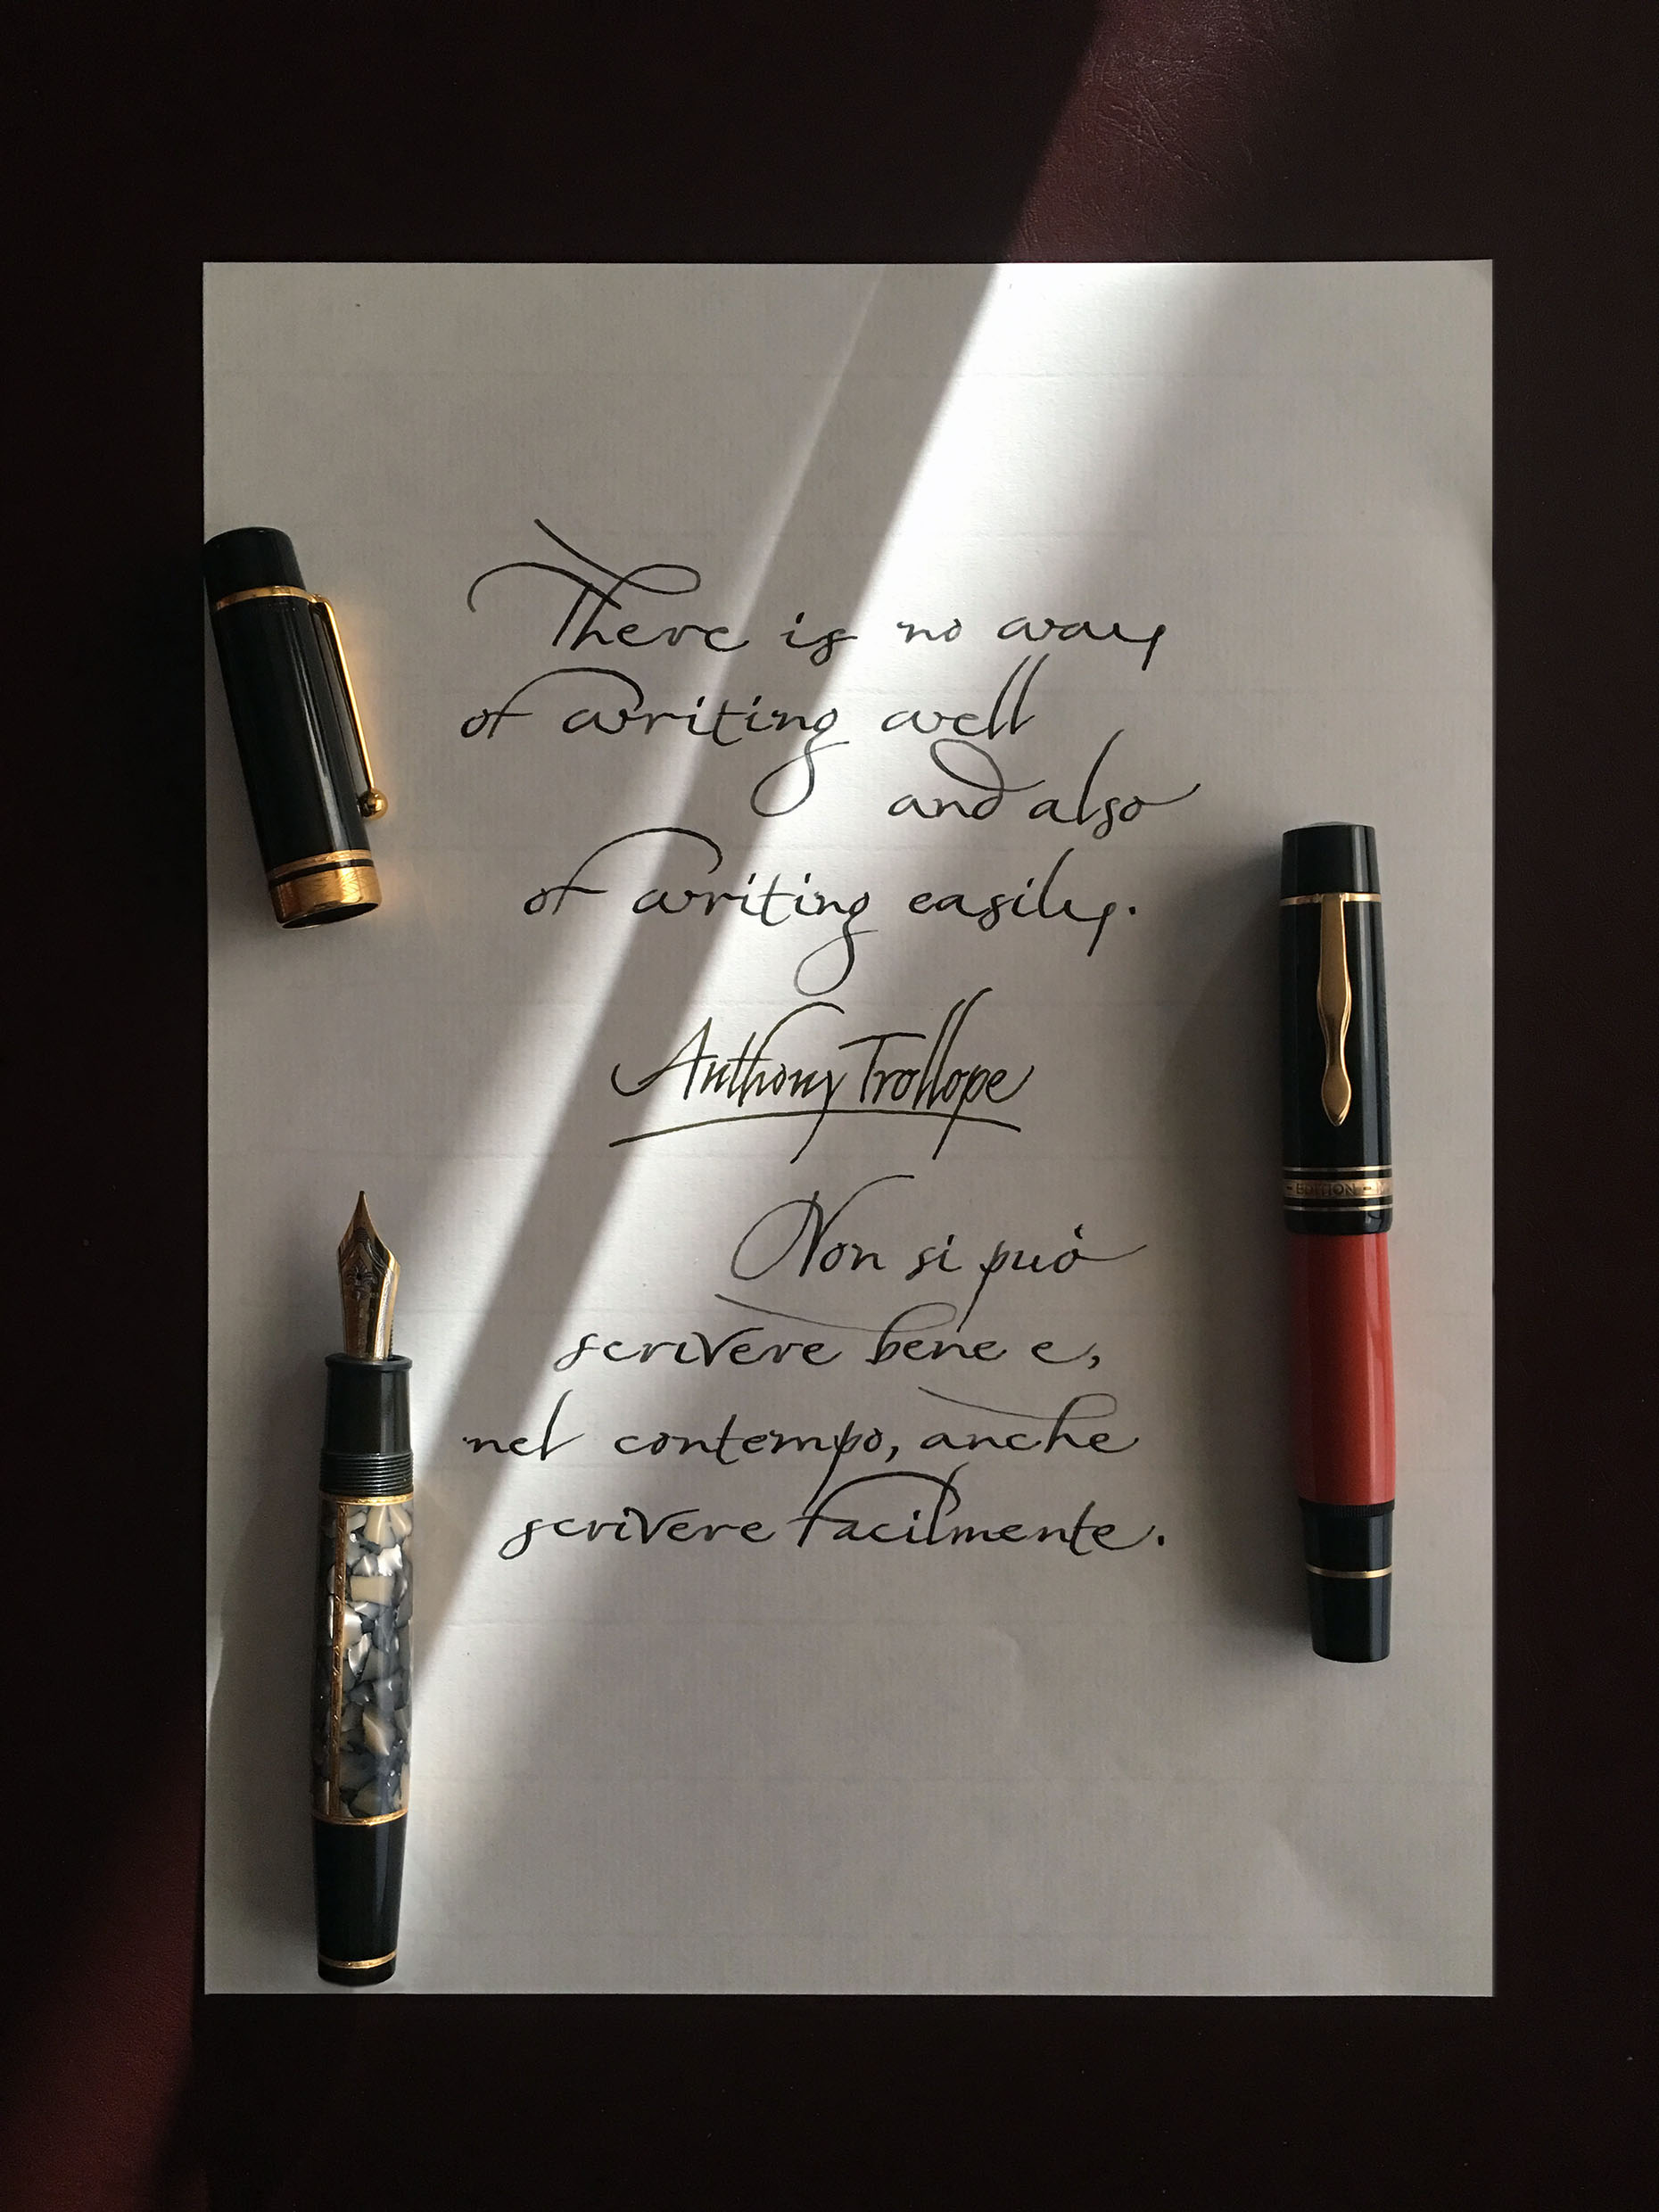 There is no way
of writing well
and also
of writing easily.
Anthony Trollope
Non si può
scrivere bene e,
nel contempo, anche
scrivere facilmente.
EDITION